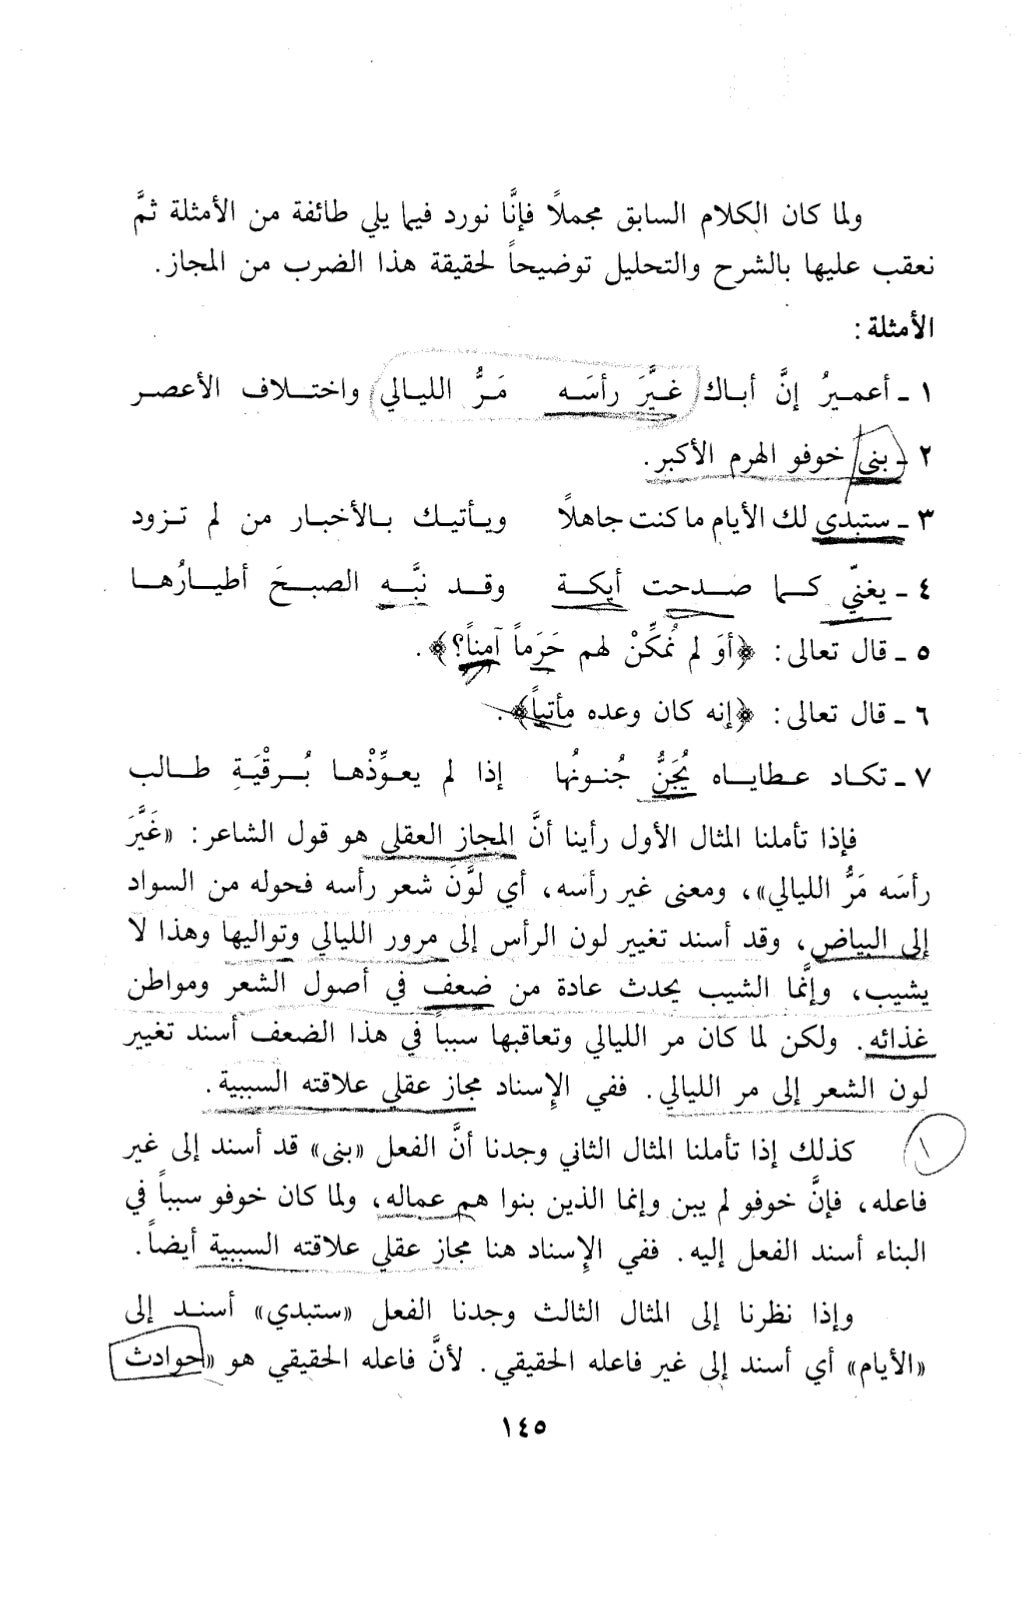 ولما كان الكلام السابق مجملاً فإنَّا نورد فيما يلي طائفة من الأمثلة ثمَّ
نعقب عليها بالشرح والتحليل توضيحاً لحقيقة هذا الضرب من المجاز.
الأمثلة:
١ ـ أعميرُ إنَّ أباك غيَّرَ رأسَه مَرُّ الليالي واختلاف الأعصر
٢ ـ بنى خوفو الهرم الأكبر.
٣ ـ ستبدي لك الأيام ما كنت جاهلاً ويأتيك بالأخبار من لم تزود
٤ ـ يغنّي كما صدحت أيكة وقد نبَّه الصبحَ أطيارُها
٥ ـ قال تعالى: ﴿أوَ لم نُمكِّنْ لهم حَرَماً آمناً؟﴾.
٦ ـ قال تعالى: ﴿إنه كان وعده مأتياً﴾.
٧ ـ تكاد عطاياه يُجَنُّ جُنونُها إذا لم يعوِّذْها بُرقْيَةِ طالب
فإذا تأملنا المثال الأول رأينا أنَّ المجاز العقلي هو قول الشاعر: «غَيَّرَ
رأسَه مَرُّ الليالي»، ومعنى غير رأسه، أي لوَّنَ شعر رأسه فحوله من السواد
إلى البياض، وقد أسند تغيير لون الرأس إلى مرور الليالي وتواليها وهذا لا
يشيب، وإنَّما الشيب يحدث عادة من ضعف في أصول الشعر ومواطن
غذائه. ولكن لما كان مر الليالي وتعاقبها سبباً في هذا الضعف أسند تغيير
لون الشعر إلى مر الليالي. ففي الإسناد مجاز عقلي علاقته السببية.
١
كذلك إذا تأملنا المثال الثاني وجدنا أنَّ الفعل «بنى» قد أسند إلى غير
فاعله، فإنَّ خوفو لم يبن وإنما الذين بنوا هم عماله، ولما كان خوفو سبباً في
البناء أسند الفعل إليه. ففي الإسناد هنا مجاز عقلي علاقته السببية أيضاً.
وإذا نظرنا إلى المثال الثالث وجدنا الفعل «ستبدي» أسند إلى
«الأيام» أي أسند إلى غير فاعله الحقيقي. لأنَّ فاعله الحقيقي هو «حوادث
١٤٥